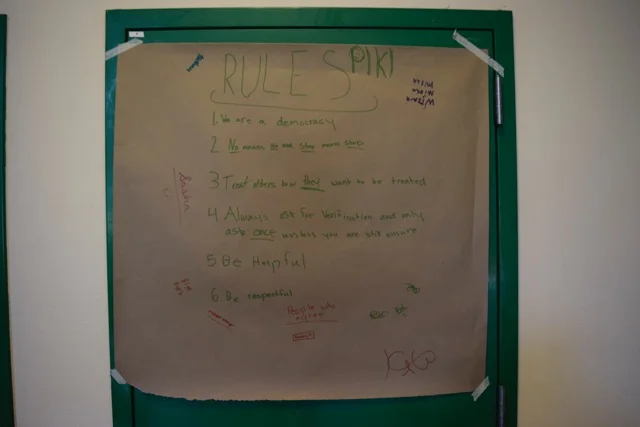 RULES PIKI
1. We are a democracy
2. No means no and stop means stop
3 Treat others how they want to be treated
4 Always ask for verification and only
ask once unless you are still unsure
5 Be Helpful
6. Be respectful
People who
agree